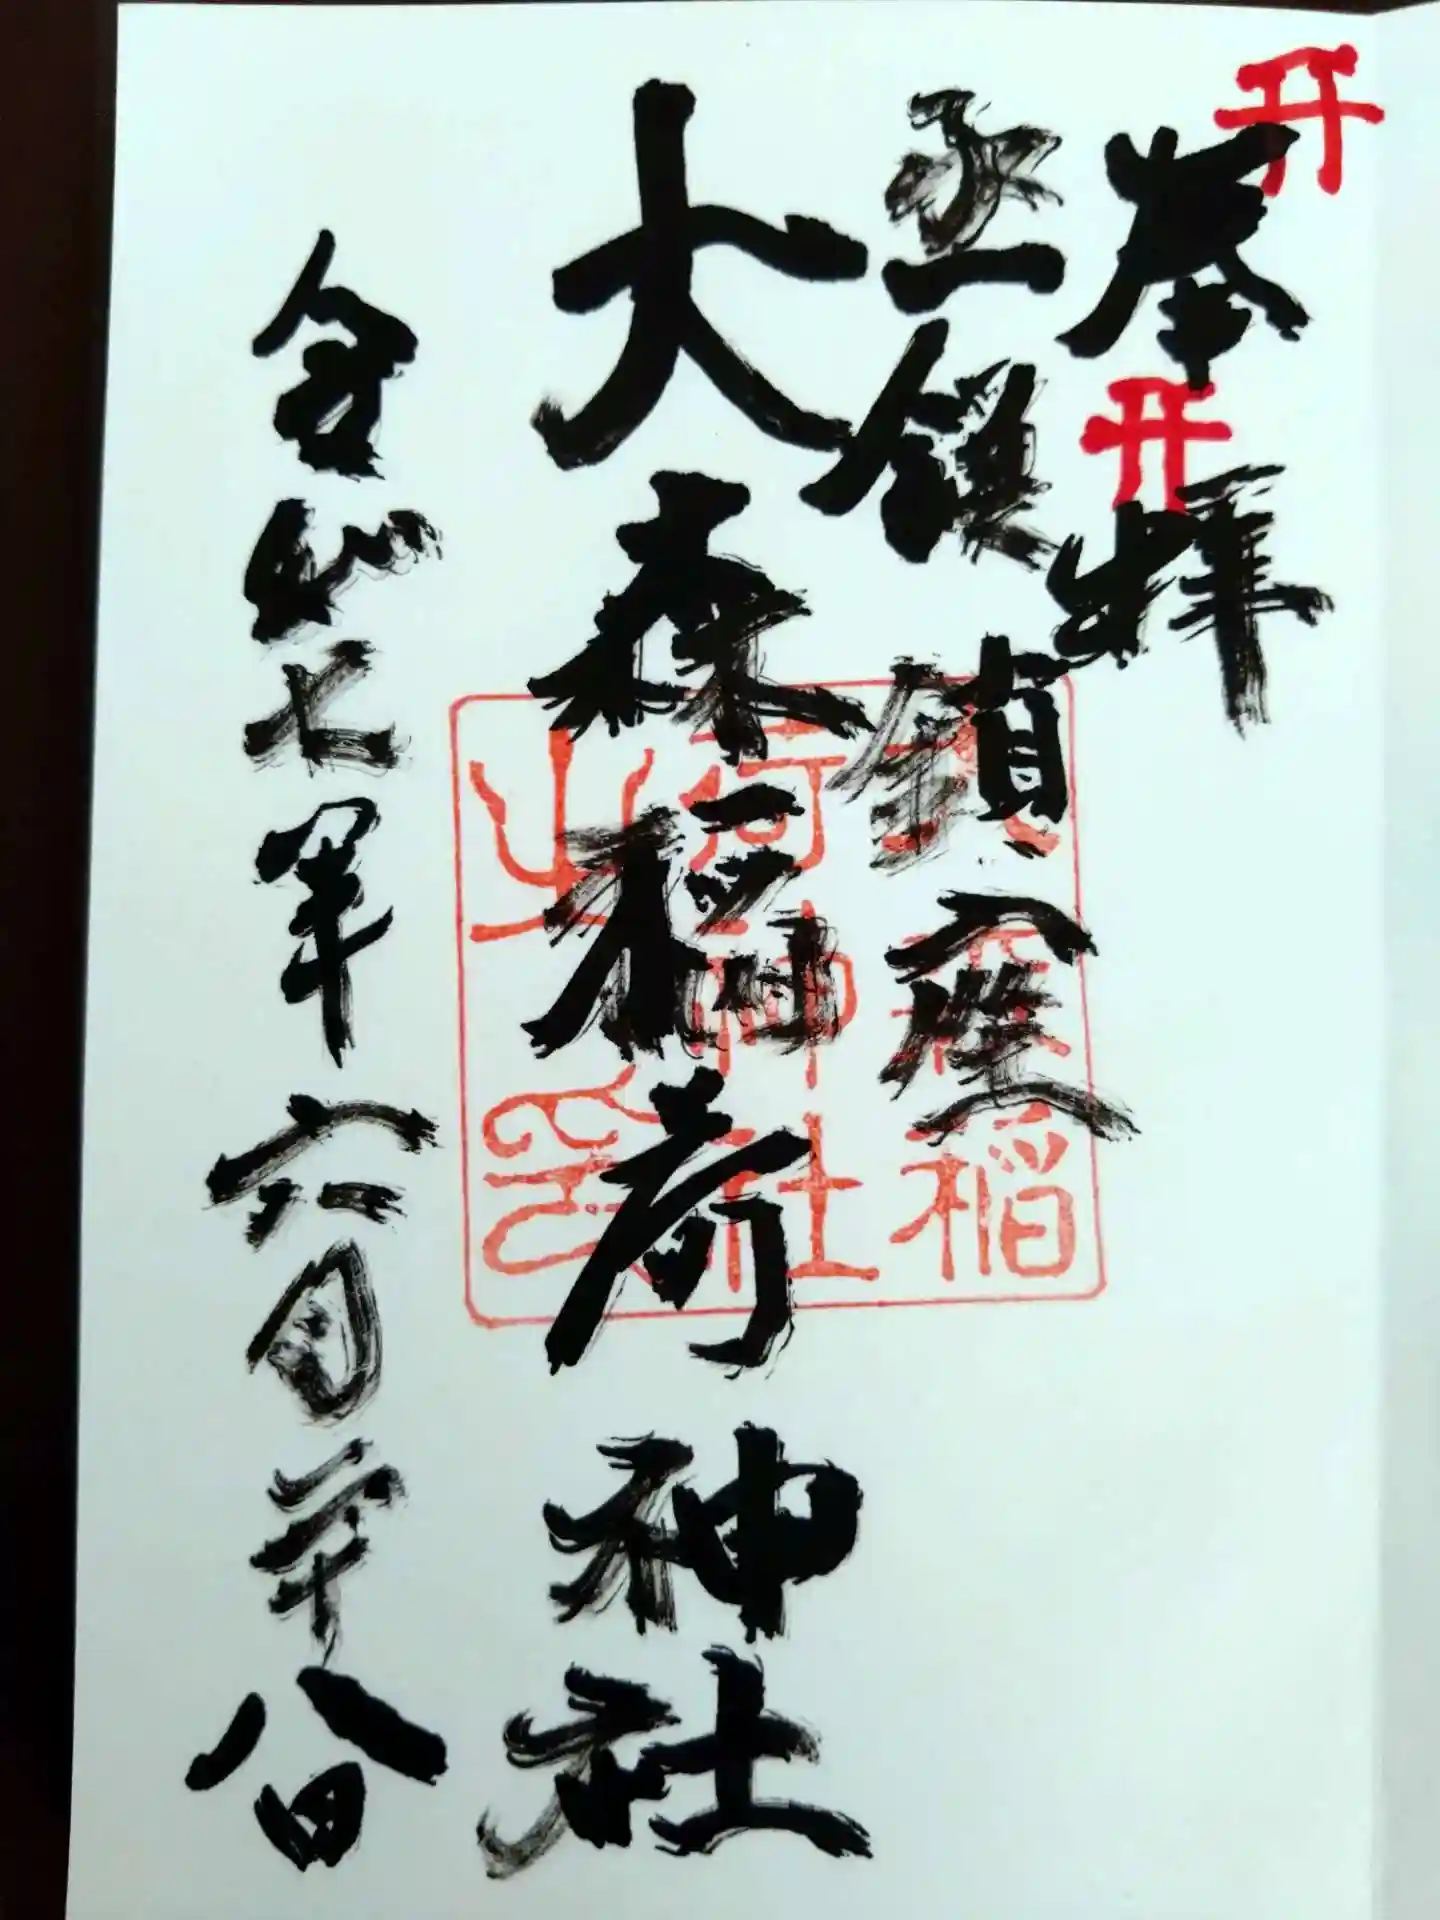 奉拝
函館鎮座
大森稲荷神社
令和七年六月二十八日
大森稲
荷神社
之印